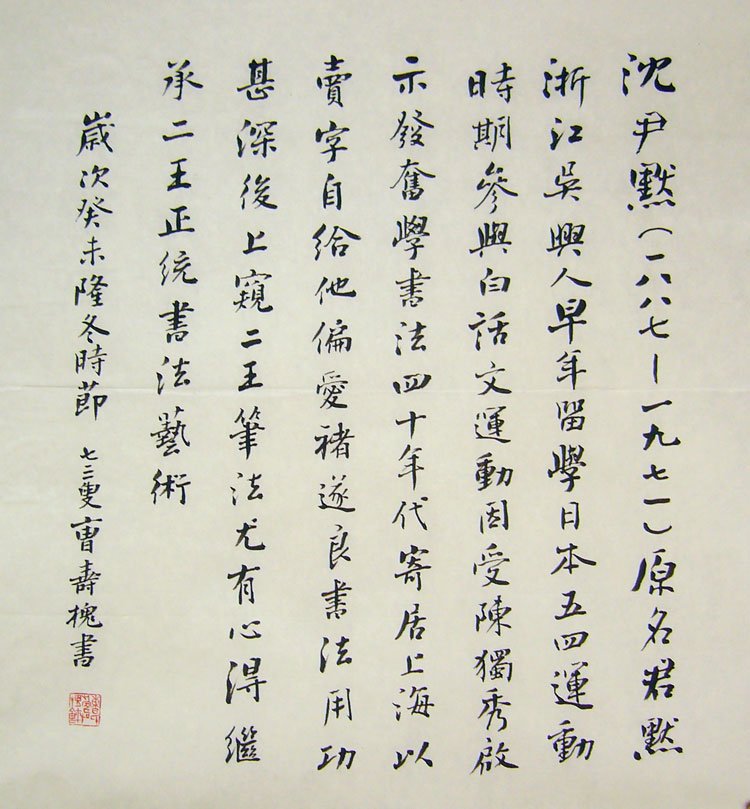 沈尹默（一八八七—一九七一）原名君默
浙江吳興人早年留學日本五四運動
時期參與白話文運動因受陳獨秀啟
示發奮學書法四十年代寄居上海以
賣字自給他偏愛褚遂良書法用功
甚深後上窺二王筆法尤有心得繼
承二王正統書法藝術
歲次癸未隆冬時節
七二叟曹壽槐書